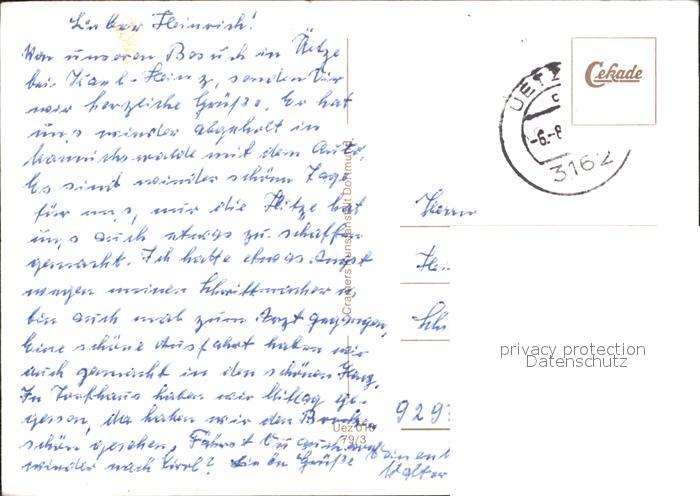 Lieber Heinrich!
Von unseren Besuch in Ütze
bei Karl-Heinz, senden Dir
wir herzliche Grüße. Er hat
uns wieder abgeholt in
mit dem Auto.
Es sind wieder schöne Tage
für uns, nur die Hitze hat
uns auch etwas zu schaffen
gemacht. Ich hatte etwas Angst
wegen meinen Schrittmacher u.
bin auch mal zum Arzt gegangen,
Eine schöne Ausfahrt haben wir
auch gemacht in den schönen Harz,
In Torfhaus haben wir Mittag ge-
gessen, da haben wir den Brocken
schön gesehen, Fährst Du auch
wieder nach Tirol? Liebe Grüße
Walter
Cramers Kunstanstalt Dortmund
Uez 016
79/3
Cekade
UETZ
-6.-8
3162
Herrn
Hei
929
privacy protection
Datenschutz